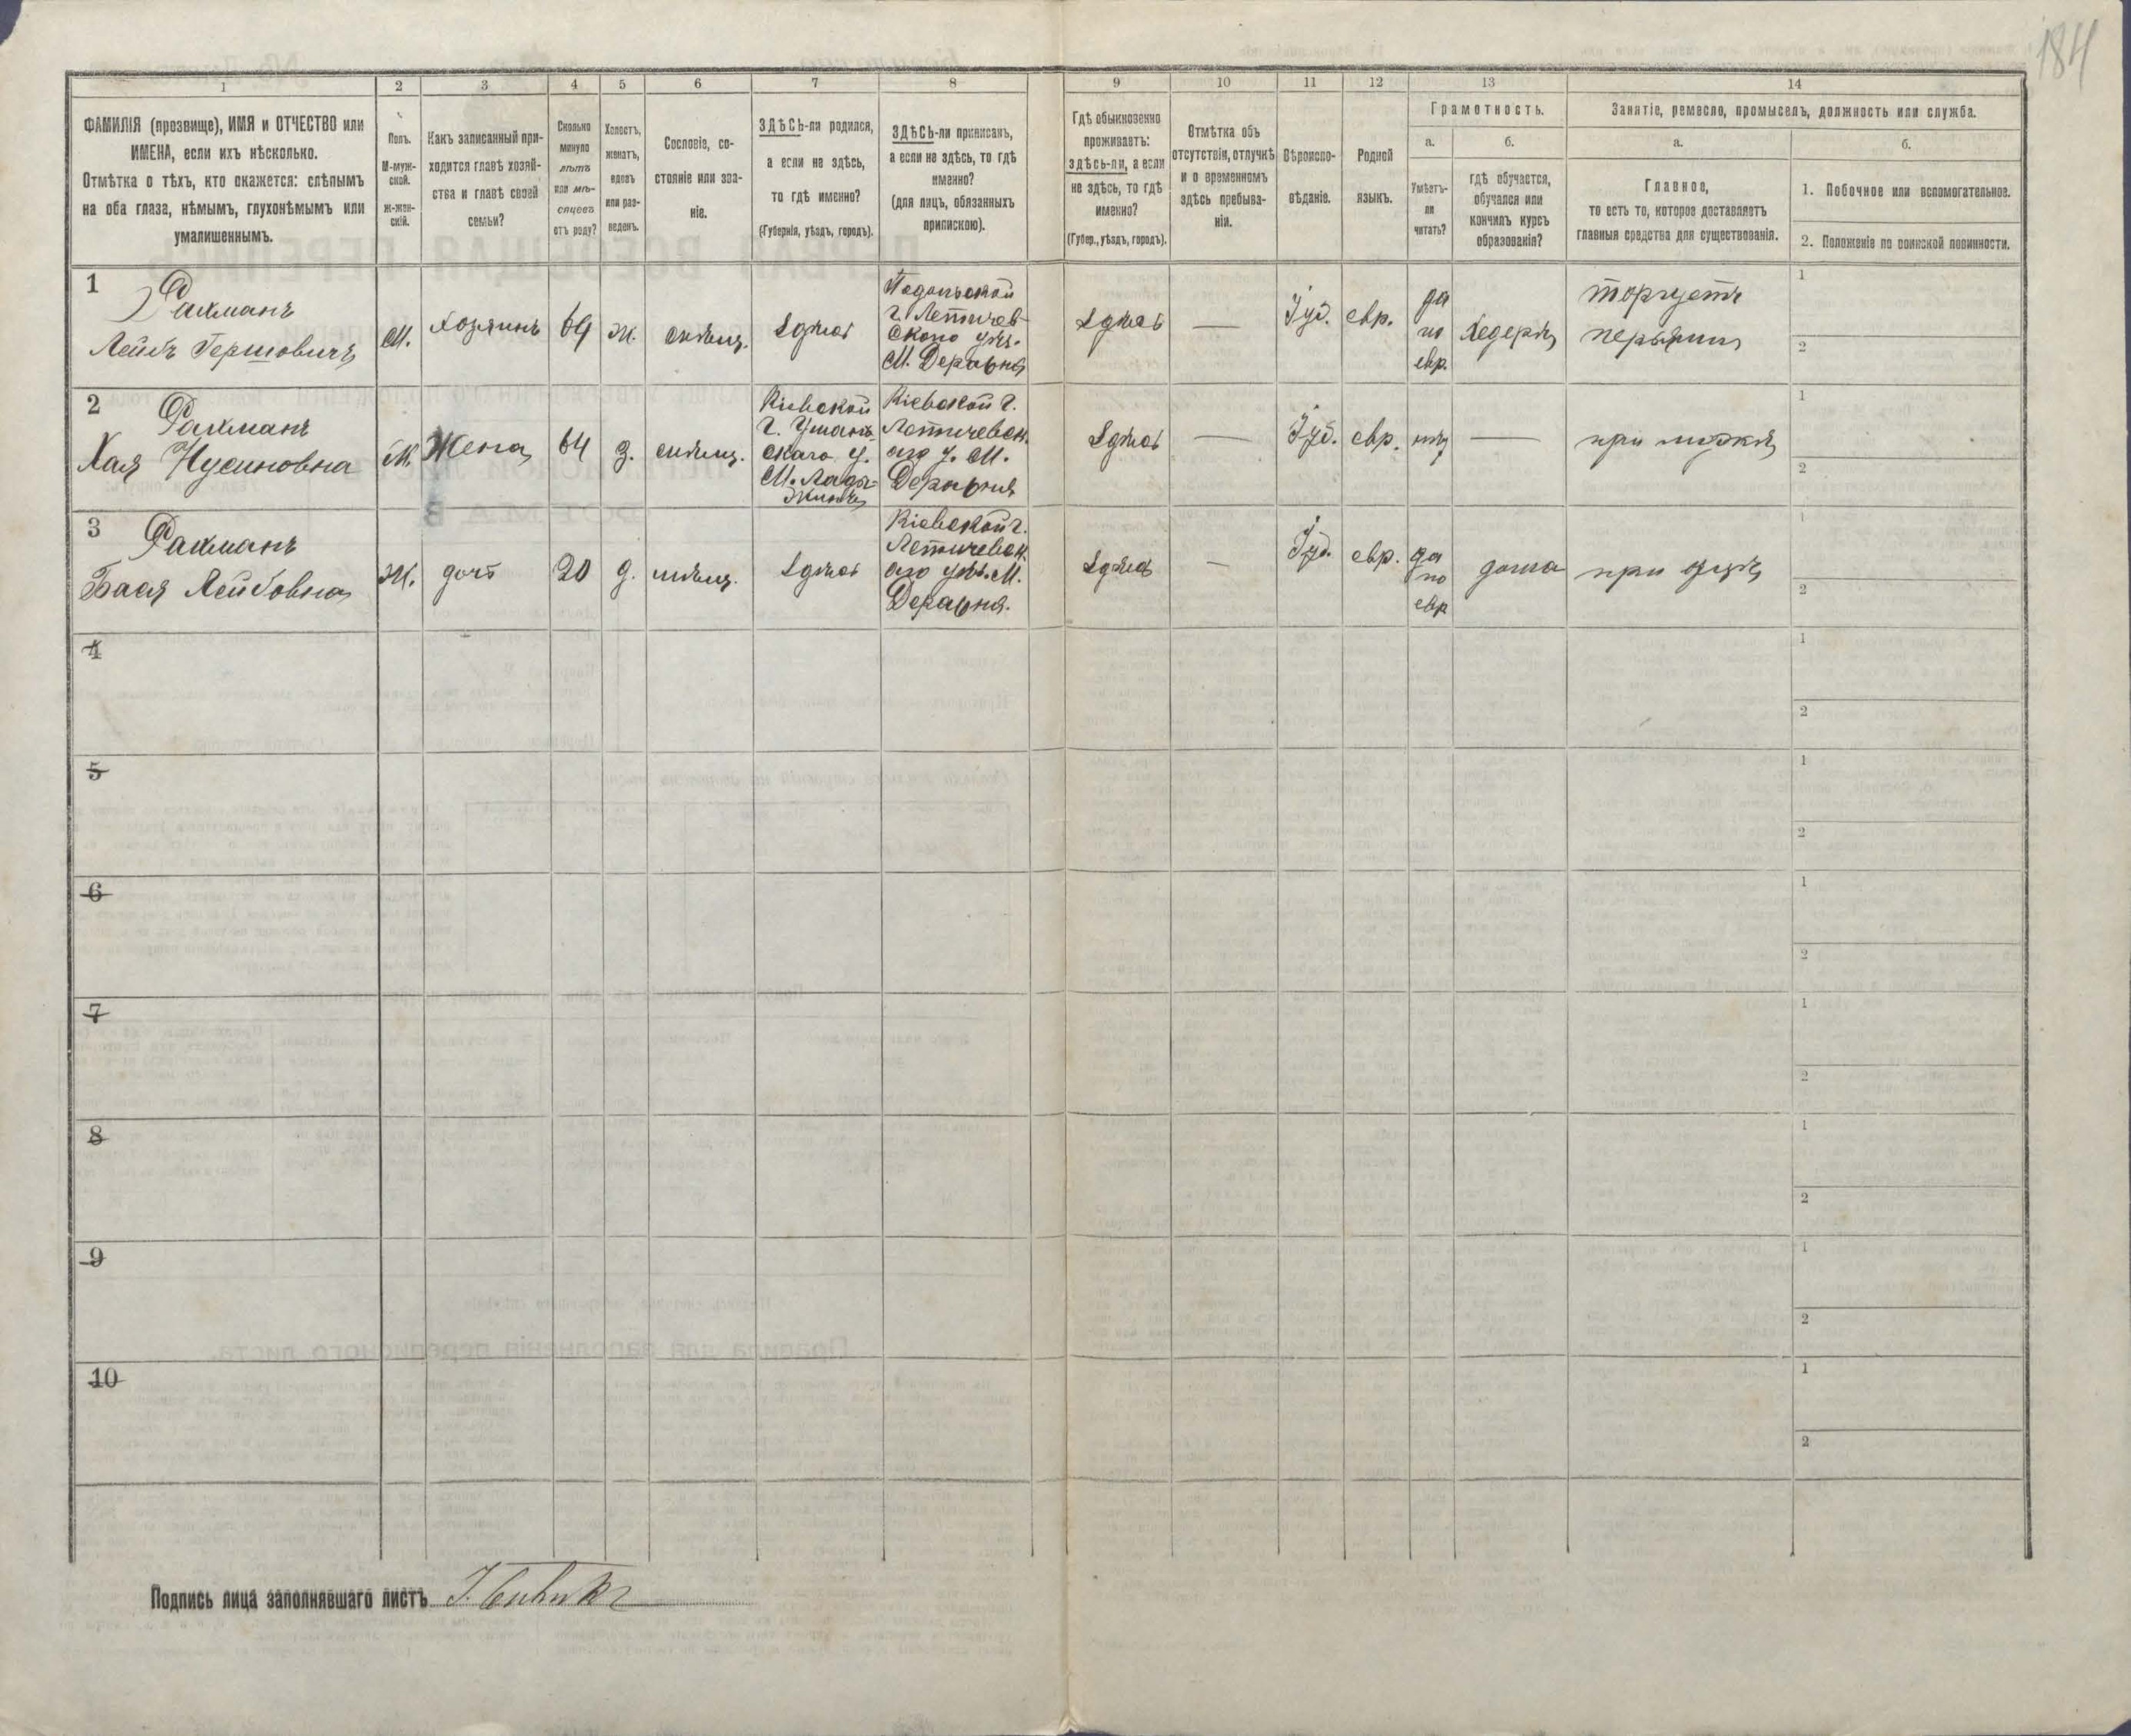 184
1
2
3
4
5
6
7
8
9
10
11
12
13
14
ФАМИЛІЯ (прозвище), ИМЯ и ОТЧЕСТВО или
ИМЕНА, если ихъ нѣсколько.
Отмѣтка о тѣхъ, кто окажется: слѣпымъ
на оба глаза, нѣмымъ, глухонѣмымъ или
умалишеннымъ.
Полъ.
М-муж-
ской.
Ж-жен-
скій.
Какъ записанный при-
ходится главѣ хозяй-
ства и главѣ своей
семьи?
Сколько
минуло
лѣтъ
или мѣ-
сяцевъ
отъ роду?
Холостъ,
женатъ,
вдовъ
или раз-
веденъ.
Сословіе, со-
стояніе или зва-
ніе.
ЗДѢСЬ-ли родился,
а если не здѣсь,
то гдѣ именно?
(Губернія, уѣздъ, городъ).
ЗДѢСЬ-ли приписанъ,
а если не здѣсь, то гдѣ
именно?
(для лицъ, обязанныхъ
припискою).
Гдѣ обыкновенно
проживаетъ:
здѣсь-ли, а если
не здѣсь, то гдѣ
именно?
(Губер., уѣздъ, городъ).
Отмѣтка объ
отсутствіи, отлучкѣ
и о временномъ
здѣсь пребыва-
ніи.
Вѣроиспо-
вѣданіе.
Родной
языкъ.
Грамотность.
а.
Умѣетъ-
ли
читать?
б.
гдѣ обучается,
обучался или
кончилъ курсъ
образованія?
Занятіе, ремесло, промыселъ, должность или служба.
а.
Главное,
то есть то, которое доставляетъ
главныя средства для существованія.
б.
1. Побочное или вспомогательное.
2. Положеніе по воинской повинности.
1
Рахманъ
Лейбъ Гершовичъ
М.
Хозяинъ
69
ж.
мѣщ.
Здѣсь
Подольской
г. Летичев-
скаго уѣз.
М. Деражня
Здѣсь
—
Іуд.
евр.
да
по
евр.
Хедеръ
торгуетъ
1
2
2
Рахманъ
Хая Нусиновна
Ж.
Жена
64
з.
мѣщ.
Кіевской
г. Уман-
скаго у.
М. Лады-
жинъ
Кіевской г.
Летичевск.
аго у. М.
Деражня
Здѣсь
—
Іуд.
евр.
нѣт
—
при мужѣ
1
2
3
Рахманъ
Бася Лейбовна
Ж.
дочь
20
д.
мѣщ.
Здѣсь
Кіевской г.
Летичевск.
аго уѣз. М.
Деражня.
Здѣсь
—
Іуд.
евр.
да
по
евр
дома
при отцѣ
1
2
4
1
2
5
1
2
6
1
2
7
1
2
8
1
2
9
1
2
10
1
2
Подпись лица заполнявшаго листъ